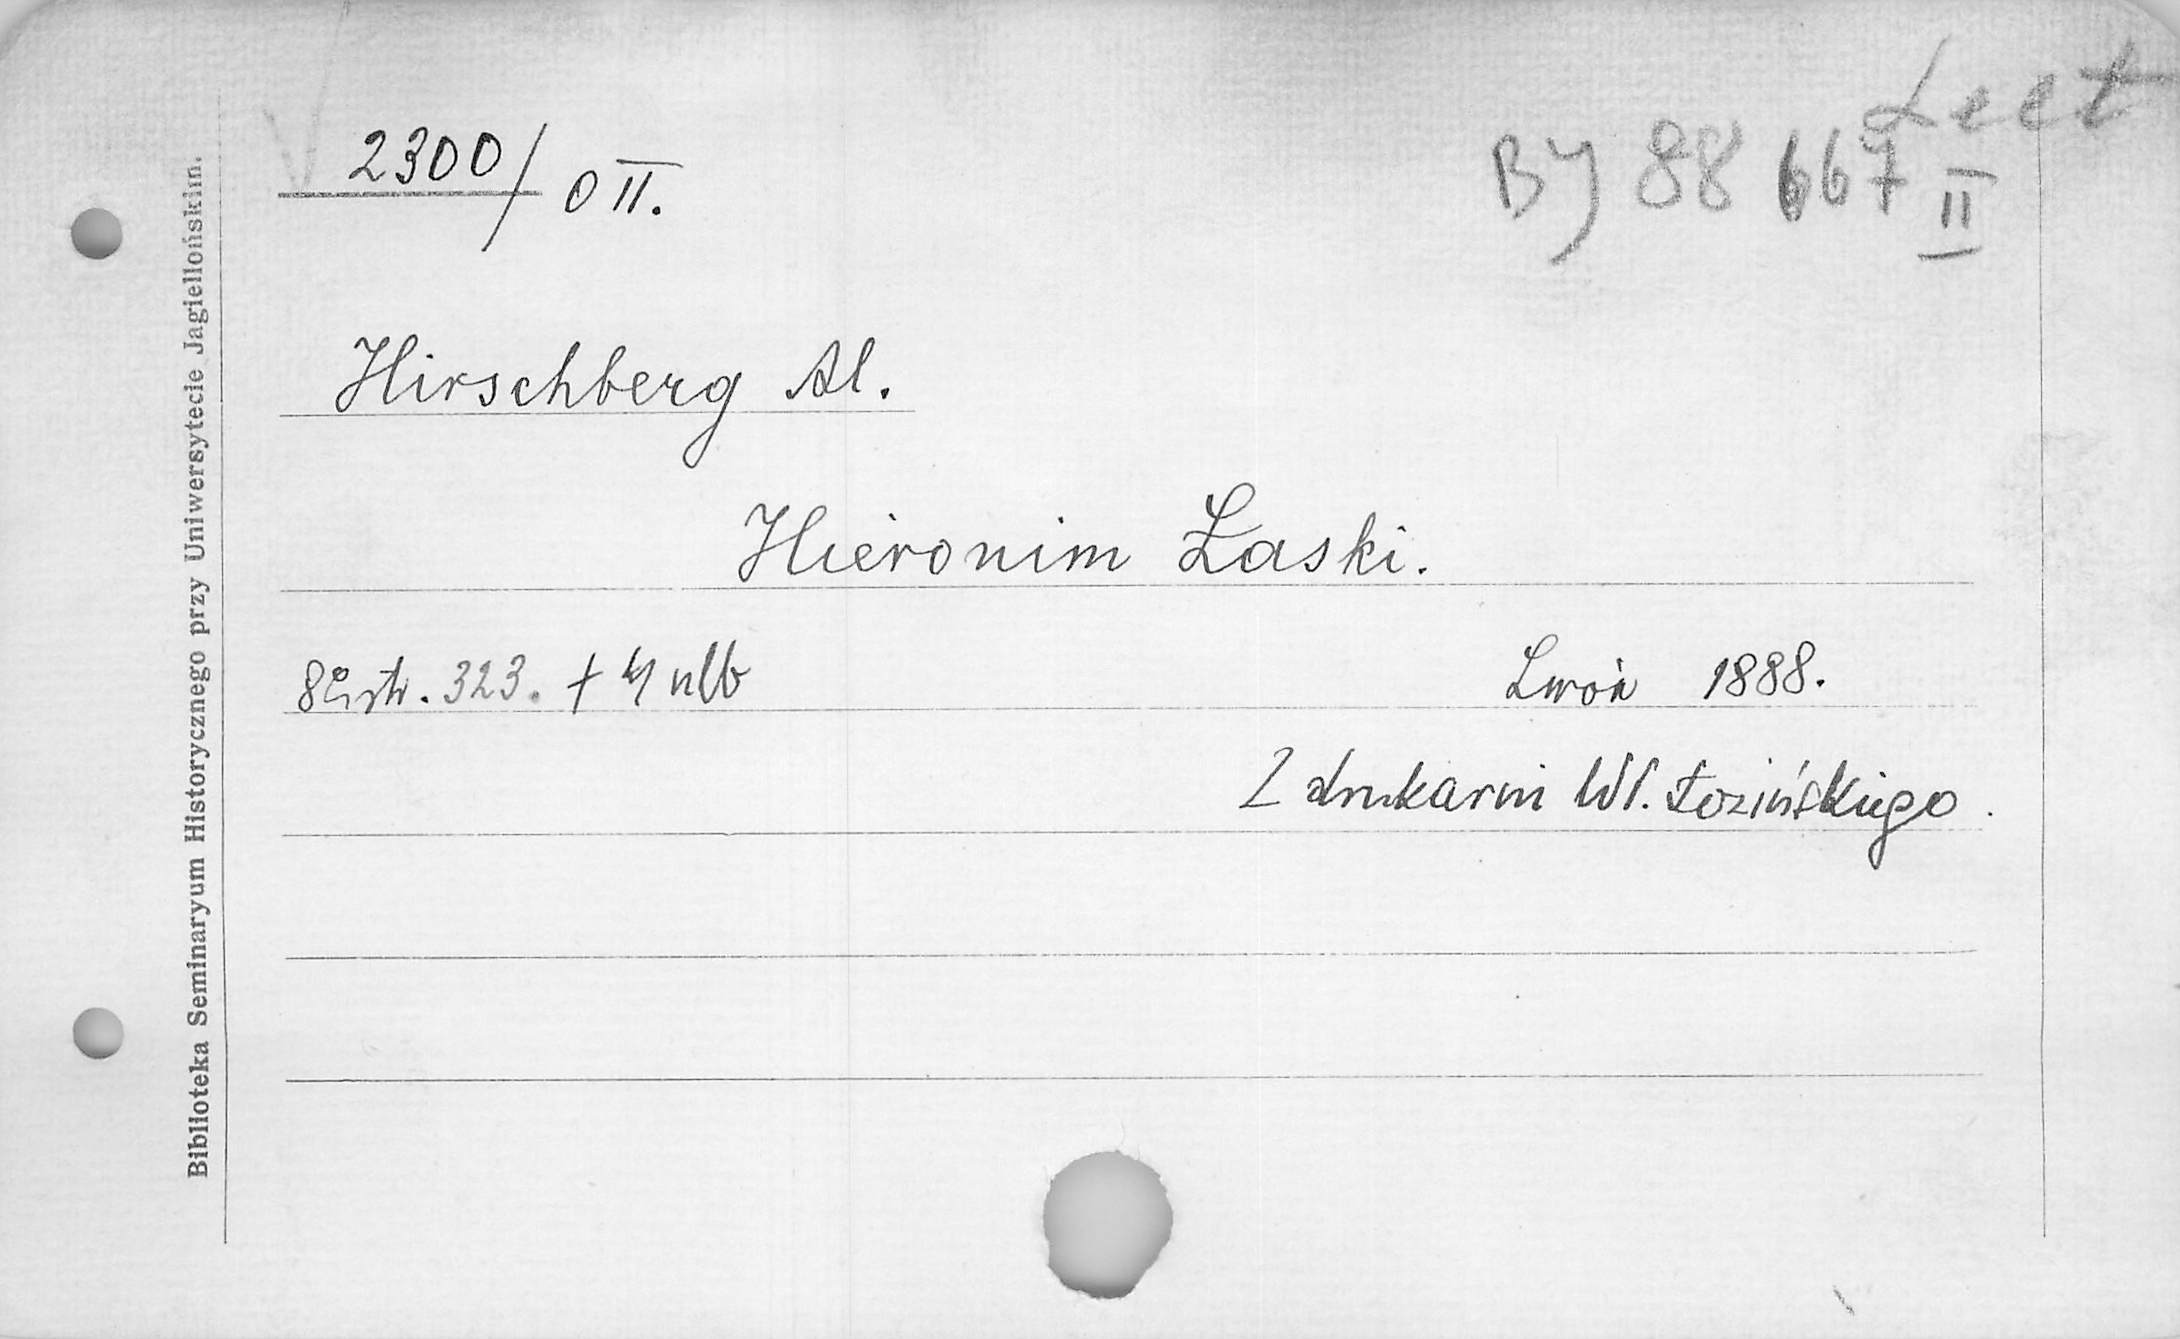 Lect
2300/ O II.
BJ 88 667 II
Hirschberg Al.
Hieronim Łaski.
8º, str. 323. + 4 nlb
Lwów 1888.
Z drukarni Wł. Łozińskiego.
Biblioteka Seminaryum Historycznego przy Uniwersytecie Jagiellońskim.